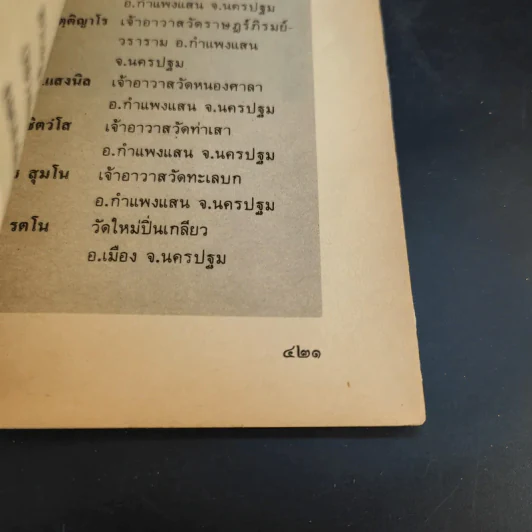 อ.กำแพงแสน จ.นครปฐม
ตฺติญาโร เจ้าอาวาสวัดราษฎร์ภิรมย์-
วราราม อ.กำแพงแสน
จ.นครปฐม
แสงนิล เจ้าอาวาสวัดหนองศาลา
อ.กำแพงแสน จ.นครปฐม
ชิตวํโส เจ้าอาวาสวัดท่าเสา
อ.กำแพงแสน จ.นครปฐม
สุมโน เจ้าอาวาสวัดทะเลบก
อ.กำแพงแสน จ.นครปฐม
รตโน วัดใหม่ปิ่นเกลียว
อ.เมือง จ.นครปฐม
๔๒๑